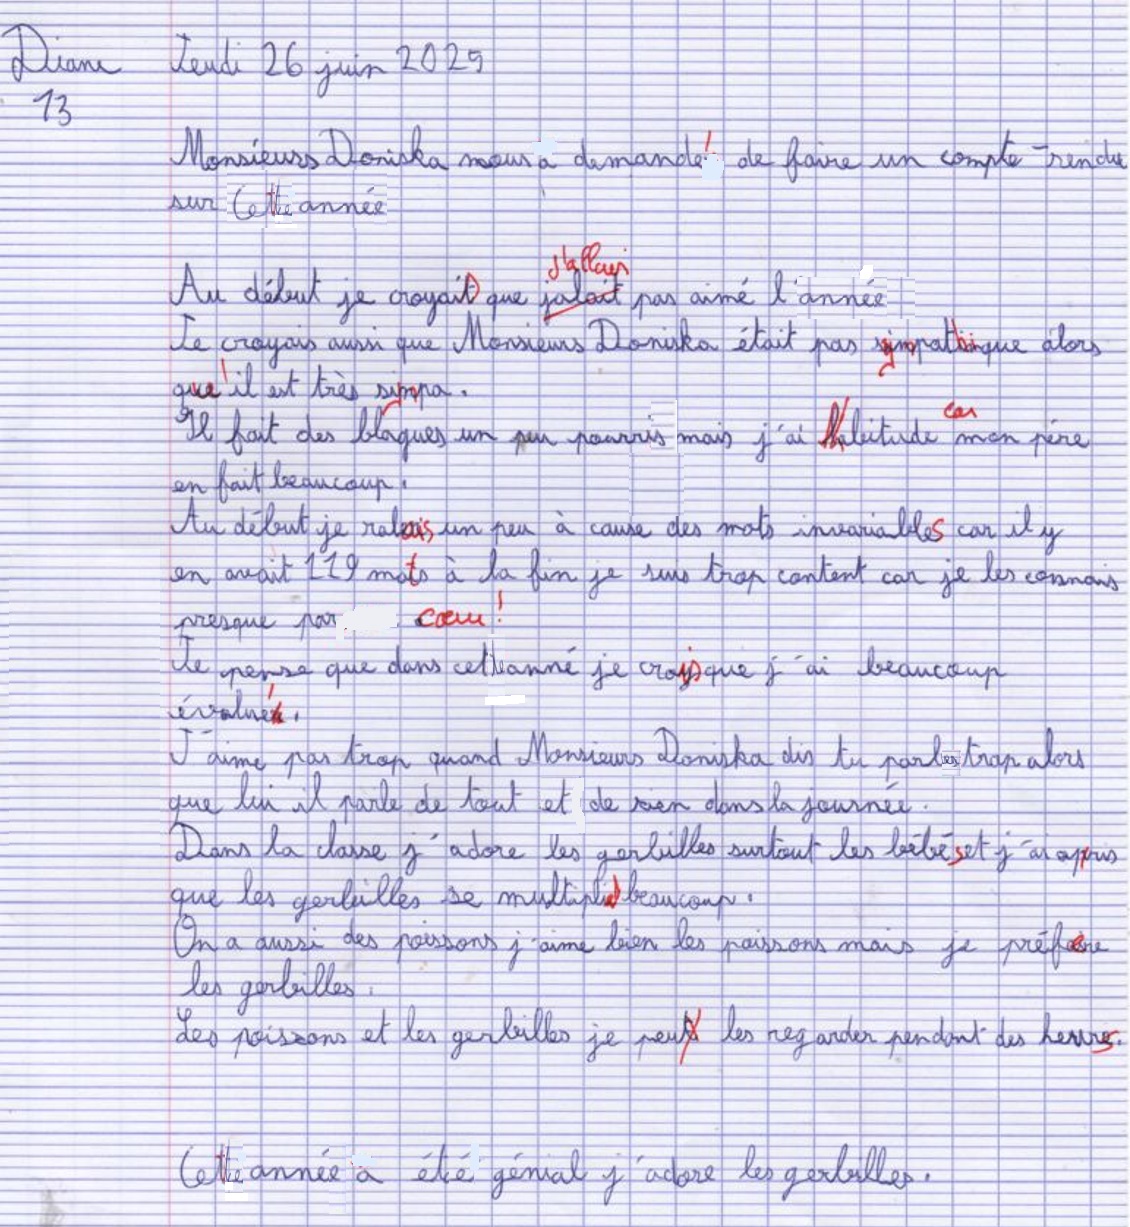 Diane Jeudi 26 juin 2025
13
Monsieurs Doniska nous a demandé de faire un compte-rendu
sur Cette année
j'allais
Au début je croyait que jalait pas aimé l'année
Je croyais aussi que Monsieurs Doniska était pas sympathique alors
que il est très simpa.
car
Il fait des blagues un peu pourris mais j'ai habitude mon père
en fait beaucoup.
Au début je ralais un peu à cause des mots invariables car il y
en avait 119 mots à la fin je suis trop content car je les connais
presque par cœur !
Je pense que dans cette anné je crois que j'ai beaucoup
évolué.
J'aime pas trop quand Monsieurs Doniska dis tu parles trop alors
que lui il parle de tout et de rien dans la journée.
Dans la classe j'adore les gerbilles surtout les bébés et j'ai appris
que les gerbilles se multiplid beaucoup.
On a aussi des poissons j'aime bien les poissons mais je préfère
les gerbilles.
Les poissons et les gerbilles je peux les regarder pendant des heures.
Cette année a été génial j'adore les gerbilles.